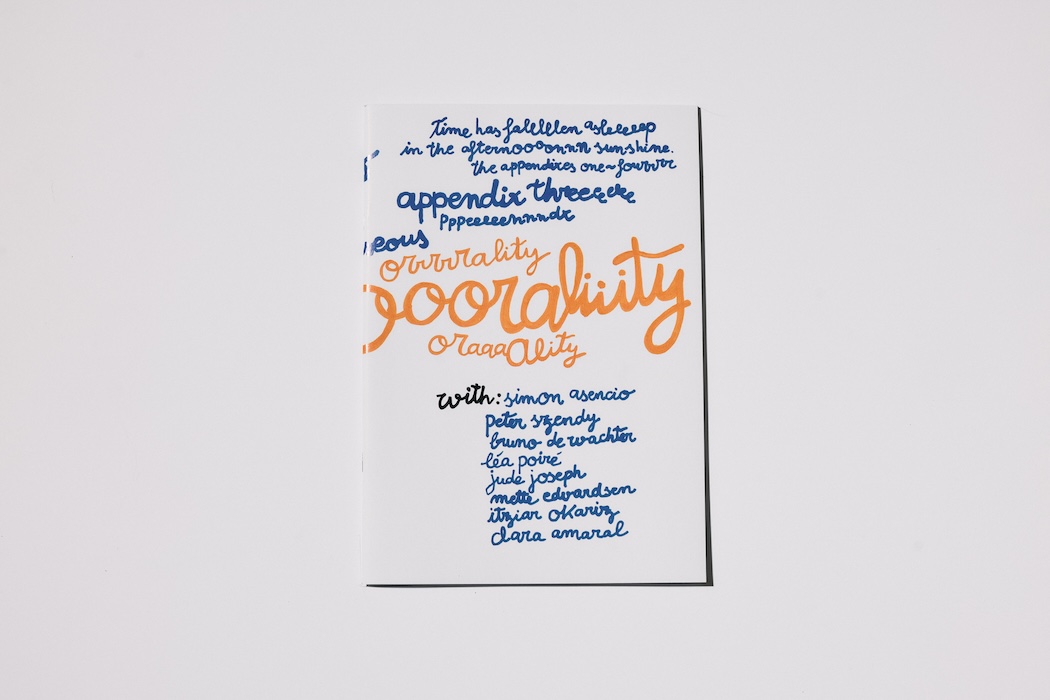 Time has falllllen asleeeeep
in the afternoooonnn sunshine.
the appendixes one~fourrrr
appendix threeeeee
Pppeeeeennnndx
eous
orrrrality
oooraliiity
oraaaAlity
with: simon asencio
peter szendy
bruno de wachter
léa poiré
jude joseph
mette edvardsen
itziar okariz
clara amaral